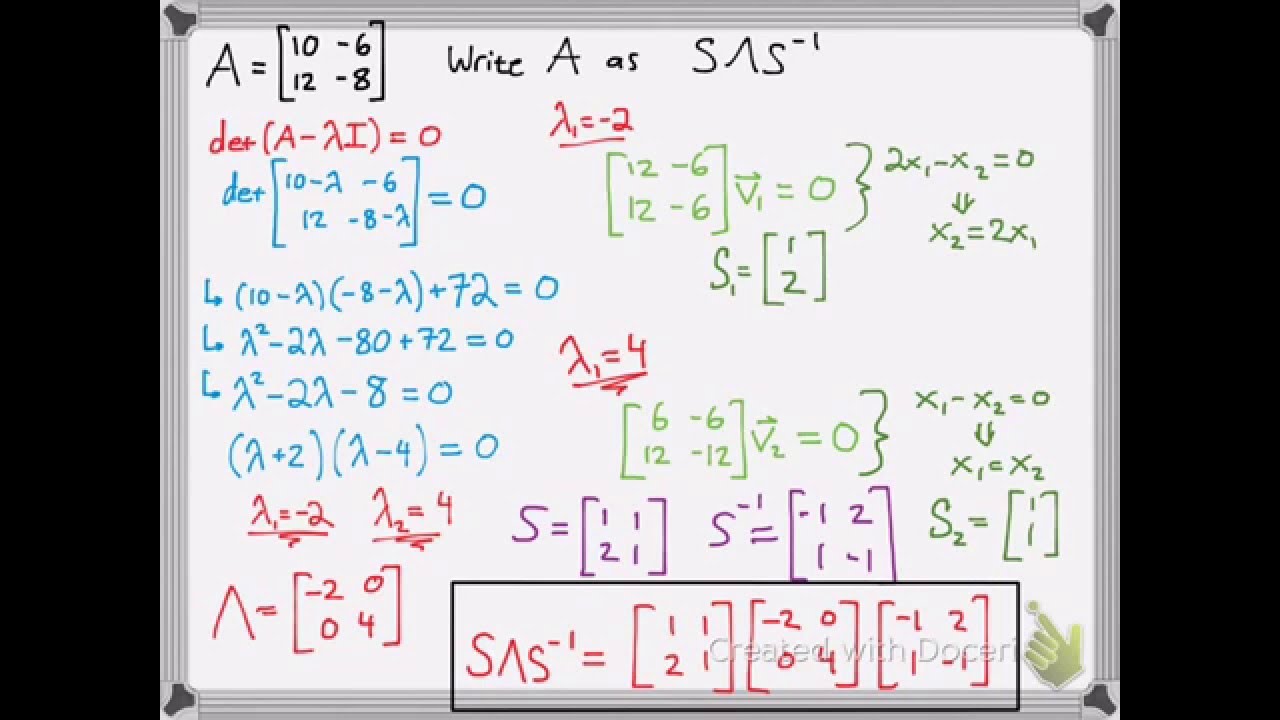 A = [10 -6; 12 -8] Write A as SΛS⁻¹
det(A-λI) = 0
det [10-λ -6; 12 -8-λ] = 0
↳ (10-λ)(-8-λ)+72 = 0
↳ λ²-2λ-80+72 = 0
↳ λ²-2λ-8 = 0
(λ+2)(λ-4) = 0
λ₁=-2 λ₂=4
Λ = [-2 0; 0 4]
λ₁=-2
[12 -6; 12 -6] v⃗₁ = 0 } 2x₁-x₂=0
⇓
x₂=2x₁
S₁ = [1; 2]
λ₁=4
[6 -6; 12 -12] v⃗₂ = 0 } x₁-x₂=0
⇓
x₁=x₂
S = [1 1; 2 1] S⁻¹ = [-1 2; 1 -1] S₂ = [1; 1]
SΛS⁻¹ = [1 1; 2 1] [-2 0; 0 4] [-1 2; 1 -1]
Created with Doceri